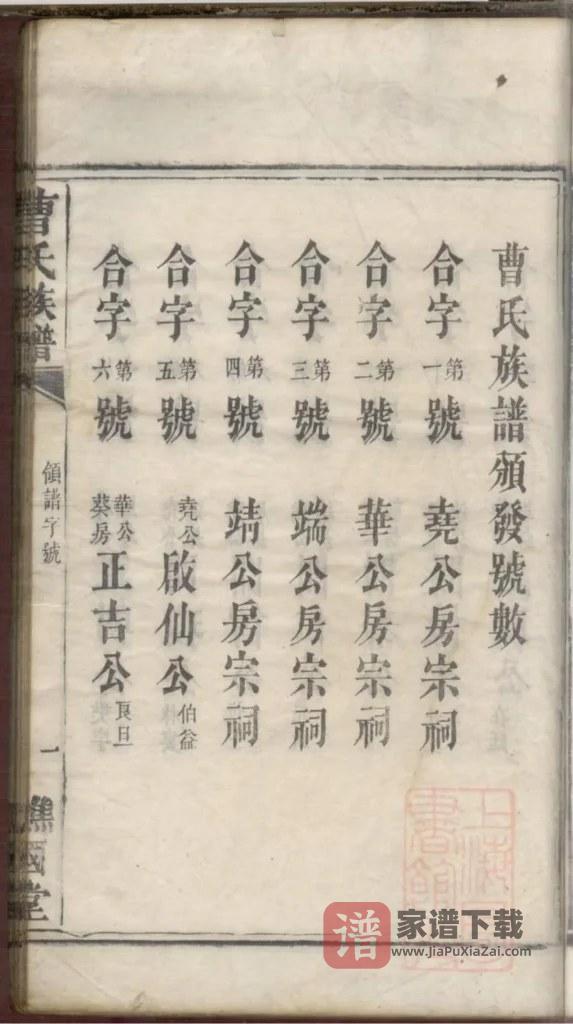 曹氏族譜頒發號數
合字第一號 堯公房宗祠
合字第二號 華公房宗祠
合字第三號 端公房宗祠
合字第四號 靖公房宗祠
合字第五號 堯公啟仙公伯益
合字第六號 華公葵房正吉公良旦
曹氏族譜
領譜字號
一
譙國堂
上海
書館
谱 家谱下载
www.JiaPuXiaZai.com